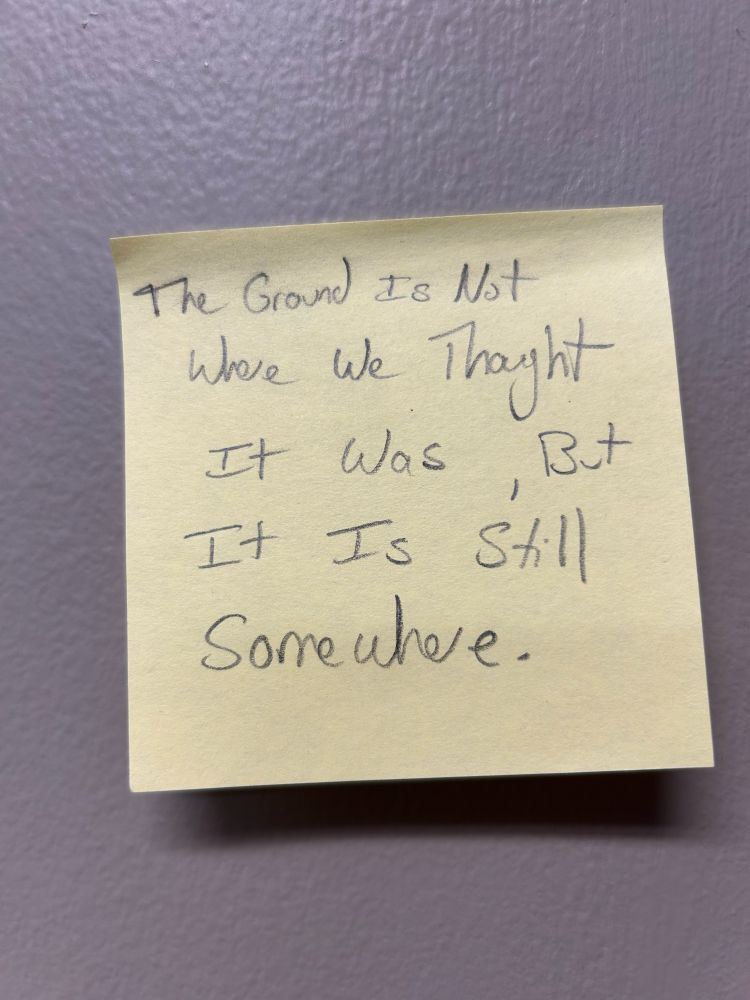 The Ground Is Not
Where We Thought
It Was , But
It Is Still
Somewhere.